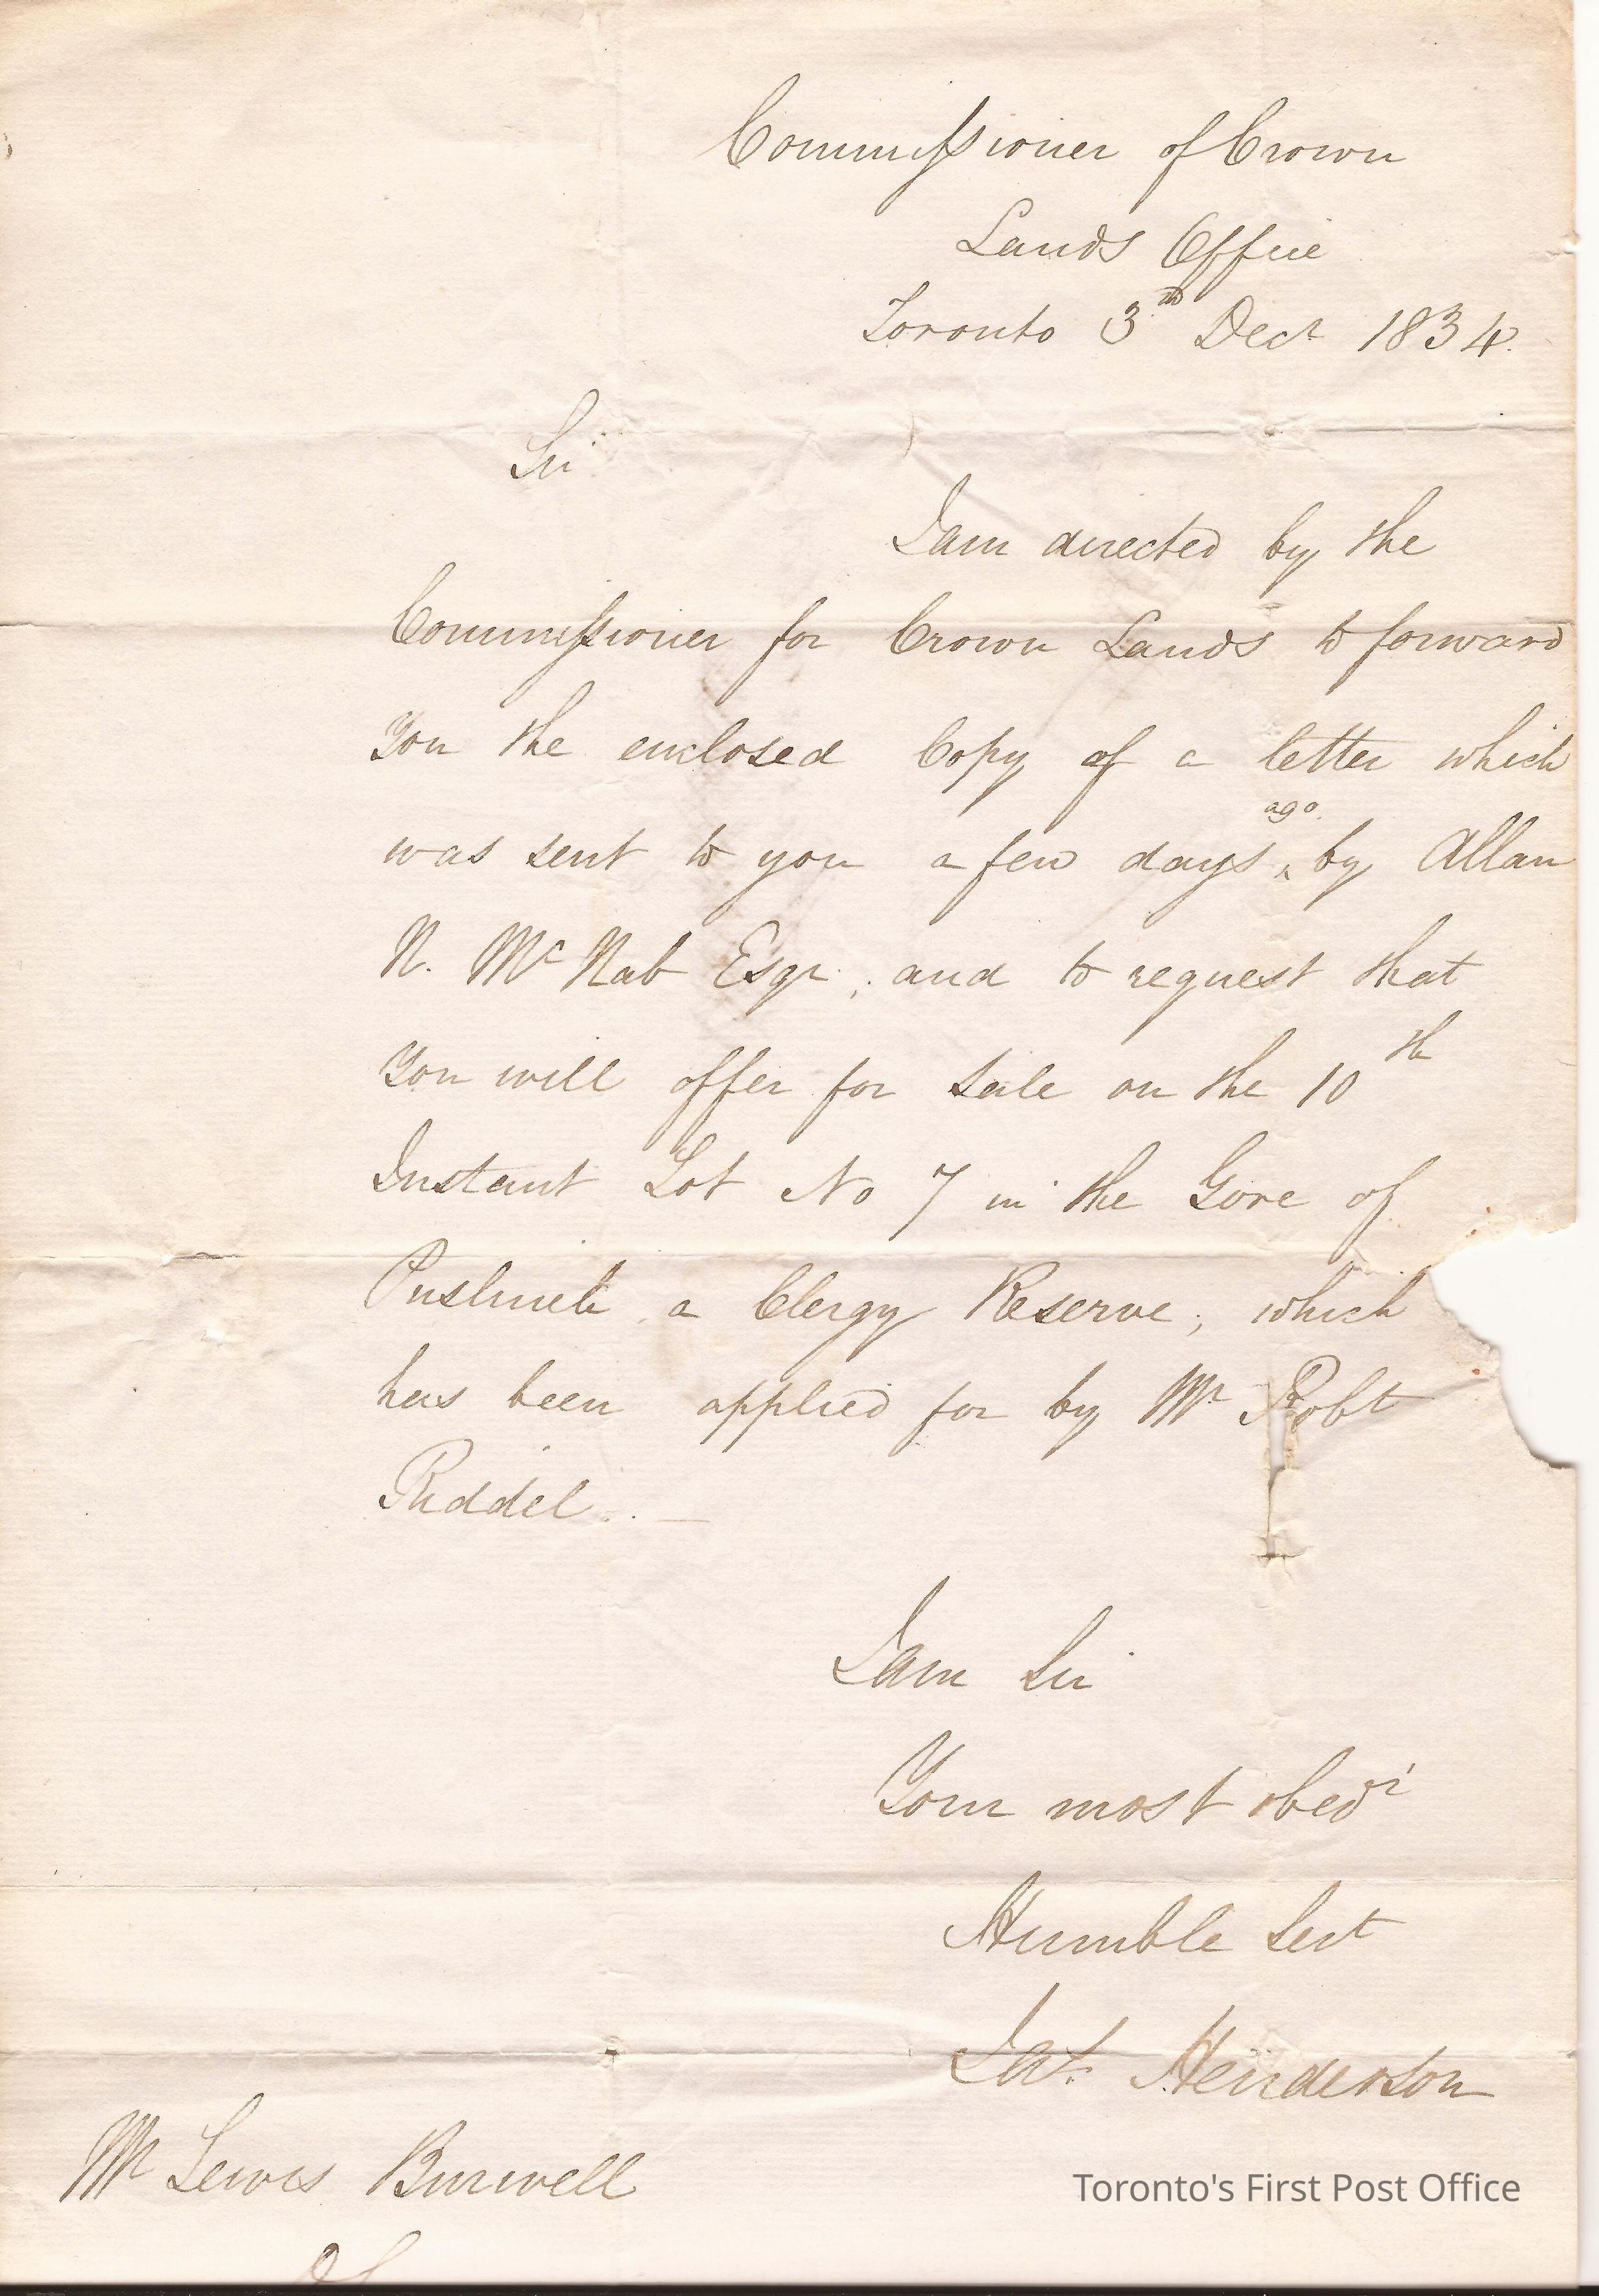 Commissioner of Crown
Lands Office
Toronto 3th Decr 1834.
Sir
I am directed by the
Commissioner for Crown Lands to forward
You the enclosed Copy of a letter which
was sent to you a few days ago by Allan
N. McNab Esqr; and to request that
You will offer for Sale on the 10th
Instant Lot No 7 in the Gore of
Puslinch a Clergy Reserve; which
has been applied for by Mr Robt
Riddel. —
I am Sir
Your most obedt
Humble Sert
Jas. Henderson
Mr Lewis Burwell
Toronto's First Post Office